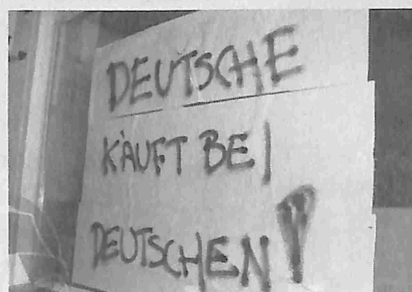 DEUTSCHE
KAUFT BEI
DEUTSCHEN!